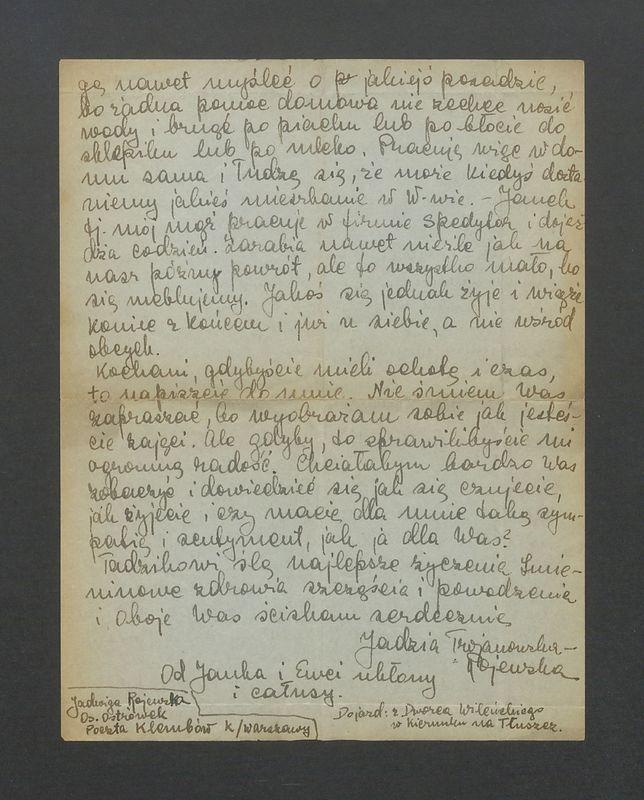 gę nawet myśleć o jakiejś posadzie,
bo żadna pomoc domowa nie zechce nosić
wody i brnąć po piachu lub po błocie do
sklepiku lub po mleko. Pracuję więc w do-
mu sama i łudzę się, że może kiedyś dosta
niemy jakieś mieszkanie w W-wie. - Janek
tj. mój mąż pracuje w firmie Spedytor i dojeż
dża codzień. Zarabia nawet nieźle jak na
nasz późny powrót, ale to wszystko mało, bo
się meblujemy. Jakoś się jednak żyje i wiąże
koniec z końcem i już u siebie, a nie wśród
obcych.
Kochani, gdybyście mieli ochotę i czas,
to napiszcie do mnie. Nie śmiem Was
zapraszać, bo wyobrażam sobie jak jesteś-
cie zajęci. Ale gdyby, to sprawilibyście mi
ogromną radość. Chciałabym bardzo Was
zobaczyć i dowiedzieć się jak się czujecie,
jak żyjecie, czy macie dla mnie taką sym-
patię i sentyment, jak ja dla Was?
Tadzikowi ślę najlepsze życzenia Imie-
ninowe zdrowia szczęścia i powodzenia
i Oboje Was ściskam serdecznie
Jadzia Trojanowska-
Rojewska
Od Janka i Ewci ukłony
i całusy.
Jadwiga Rojewska
Os. Ostrówek
Poczta Klembów k/Warszawy
Dojazd: z Dworca Wileńskiego
w kierunku na Tłuszcz.